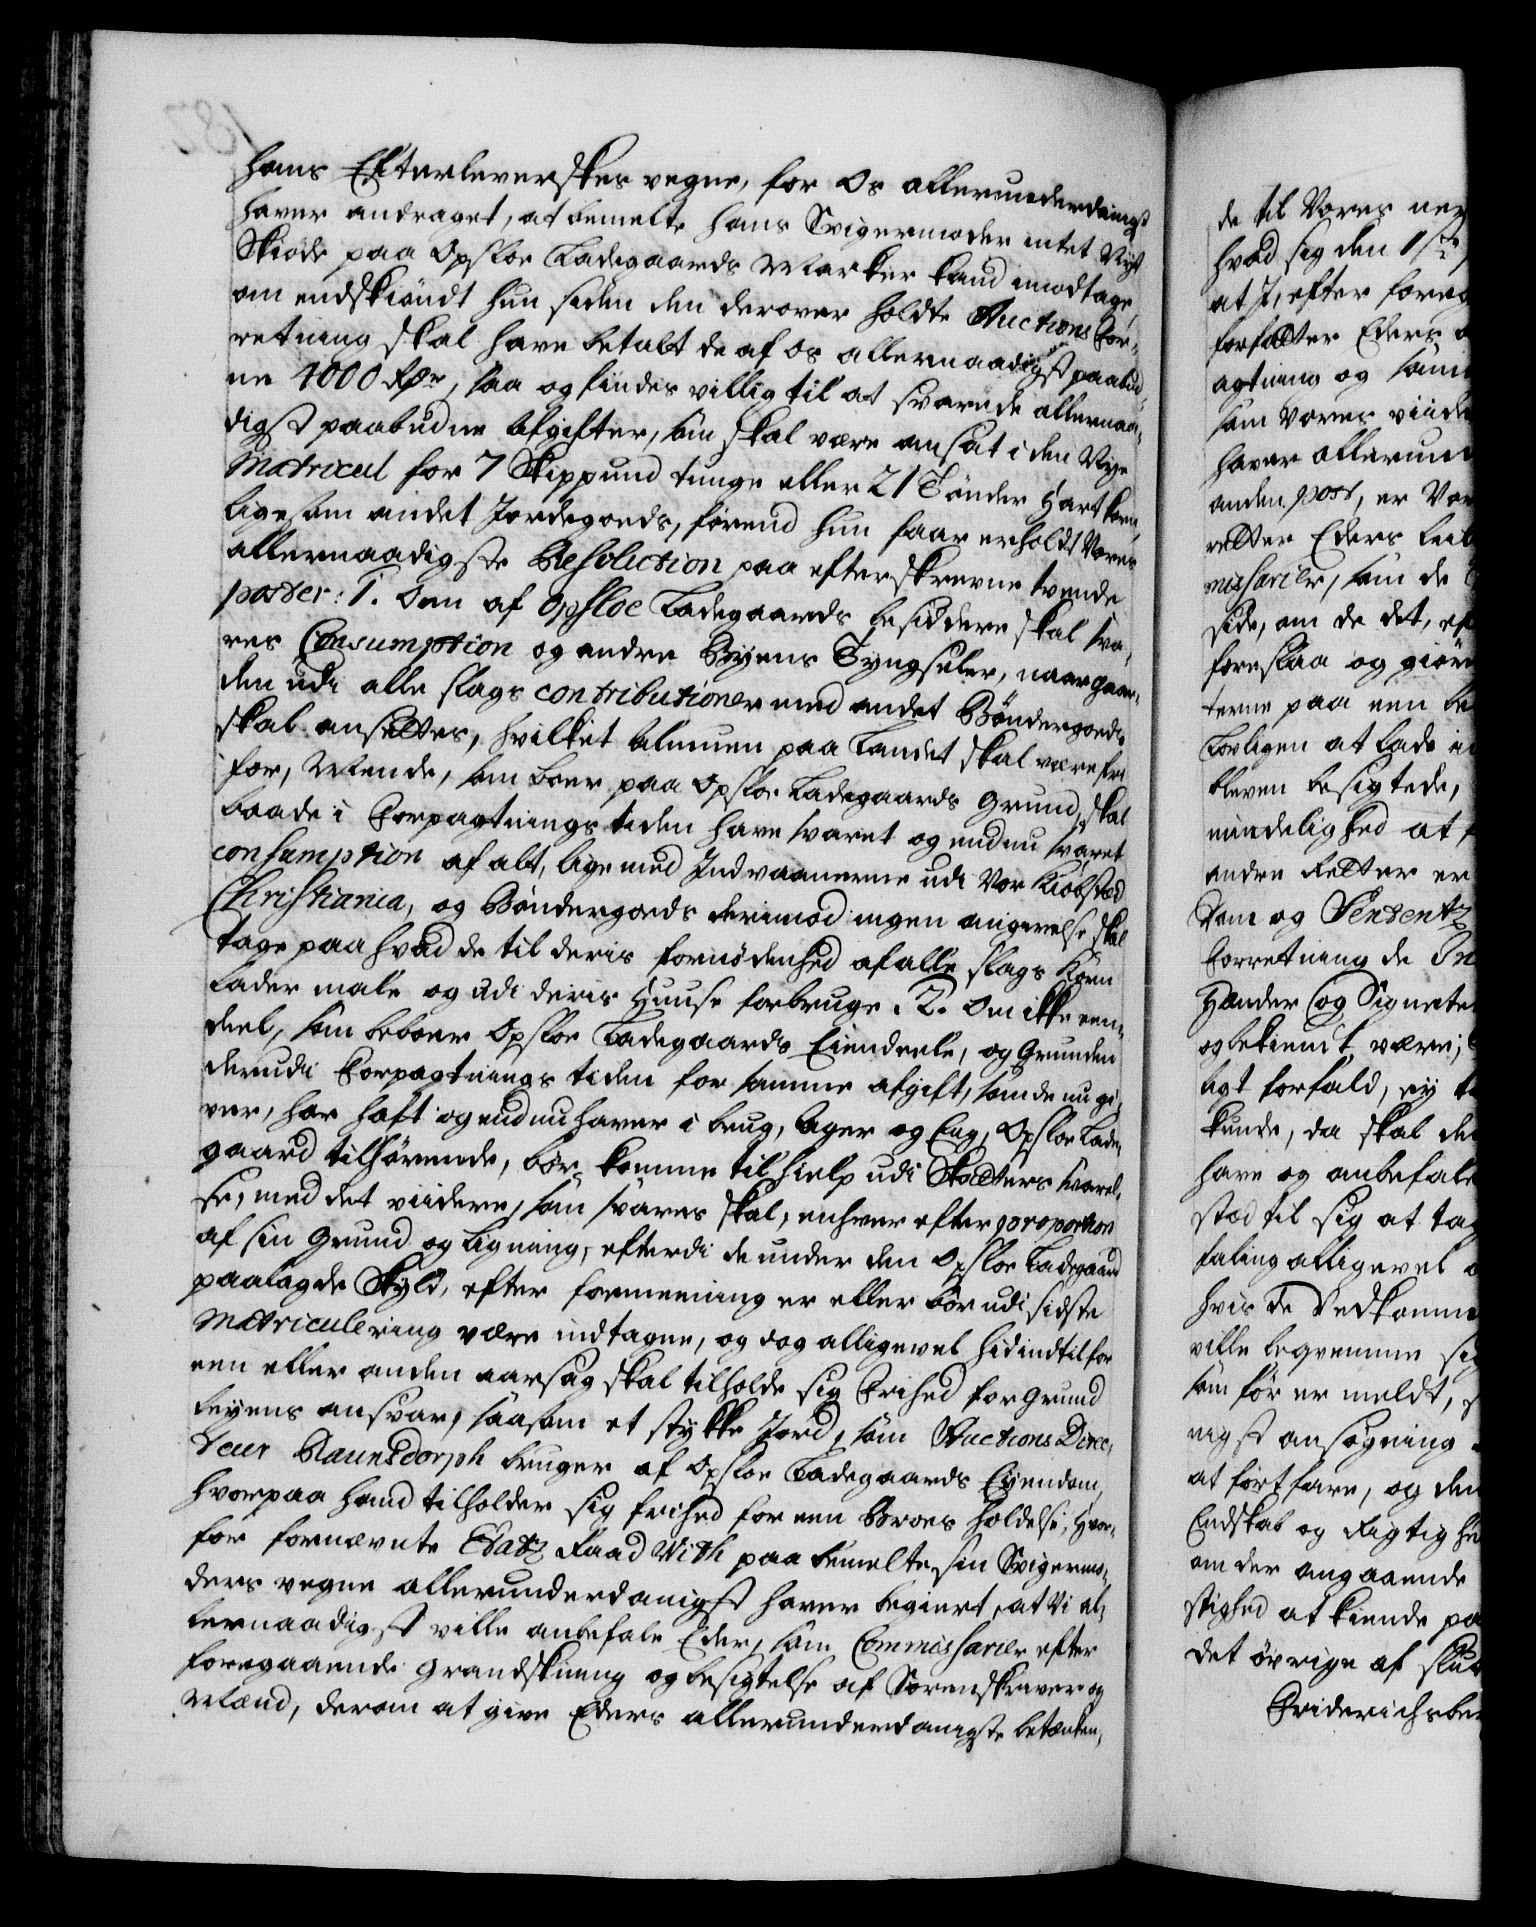 hans Efterleverskes vegne, for Os allerunderdanigst
haver andraget, at bemelte hans Svigermoder intet Nyt
Skiøde paa Opsloe Ladegaards Marker kand imodtage,
om endskiøndt hun siden den derover holdte Auctions For-
retning skal have betalt de af Os allernaadigst paabud-
ne 4000 Rdr, saa og findes villig til at svare de allernaa-
digst paabudne Afgifter, som skal være ansat i den Nye
Matricul for 7 Skippund tunge eller 21 Tønder Hartkorn,
ligesom andet Jordegoeds, førend hun faar erholdt Vores
allernaadigste Resolution paa efterskrevne tvende
poster: 1. Om af Opsloe Ladegaards besiddere skal sva-
res Consumption og andre Byens Tyngseler, naar gaar-
den udi alle slags contributioner med andet Bøndergoeds
skal ansættes, hvilket Almuen paa Landet skal være fri
for, Mende, som boer paa Opsloe Ladegaards Grund, skal
baade i Forpagtnings tiden have svaret og endnu svaret
consumption af alt, lige med Indvaanerne udi Vor Kiøbsted
Christiania, og Bøndergoeds derimod ingen angivelse skal
tage paa hvad de til deris fornødenhed af alle slags Korn
lader male og udi deris Huuse forbruge. 2. Om ikke een-
deel, som beboer Opsloe Ladegaards Eiendeele, og Grunden
derudi Forpagtnings tiden for samme afgift, som de nu gi-
ver, har haft og endnu haver i brug, Ager og Eng, Opsloe Lade-
gaard tilhørende, bør komme til hielp udi Skatters svarel-
se, med det viidere, som svares skal, enhver efter proportion
af sin Grund og Ligning, efterdi de under den Opsloe Ladegaard
paalagde Skyld, efter formening er eller bør udi sidste
Matriculering være indtagne, og dog alligevel hidindtil for
een eller anden aarsag skal tilholde sig Frihed for Grund
leyens ansvar, saasom et stykke Jord, som Auctions Direc-
teur Raunsdorph bruger af Opsloe Ladegaards Eyendom,
hvorpaa hand tilholder sig frihed for een Broes holdelse; Hvor-
for fornævnte Etatz Raad With paa bemelte sin Svigermo-
ders vegne allerunderdanigst haver begiert, at Vi al-
lernaadigst ville anbefale Eder, som Commissarier efter
foregaaende grandskning og besigtelse af Sorenskriver og
Mænd, derom at give Eders allerunderdanigste betænken-
de til Vores
hvad sig den 1ste
at I, efter
forfatter Eders
agtning og
som Vores
haver
anden post, er
retter Eders
missarier, som de
side, om de det,
foreslaa og
terne paa een
Lovligen at lade
bleven besigtede,
mindelighed at
andre Retter er
Dom og Sententz
Forretning de
Hænder og
og bekiendt være;
ligt forfald, ey
kunde, da skal
have og anbefale
stæd til sig at
faling alligevel
hvis de
ville beqvemme
som før er meldt,
nigst ansøgning
at fortfare, og den
Endskab og
om der angaaende
stighed at kiende
det øvrige af